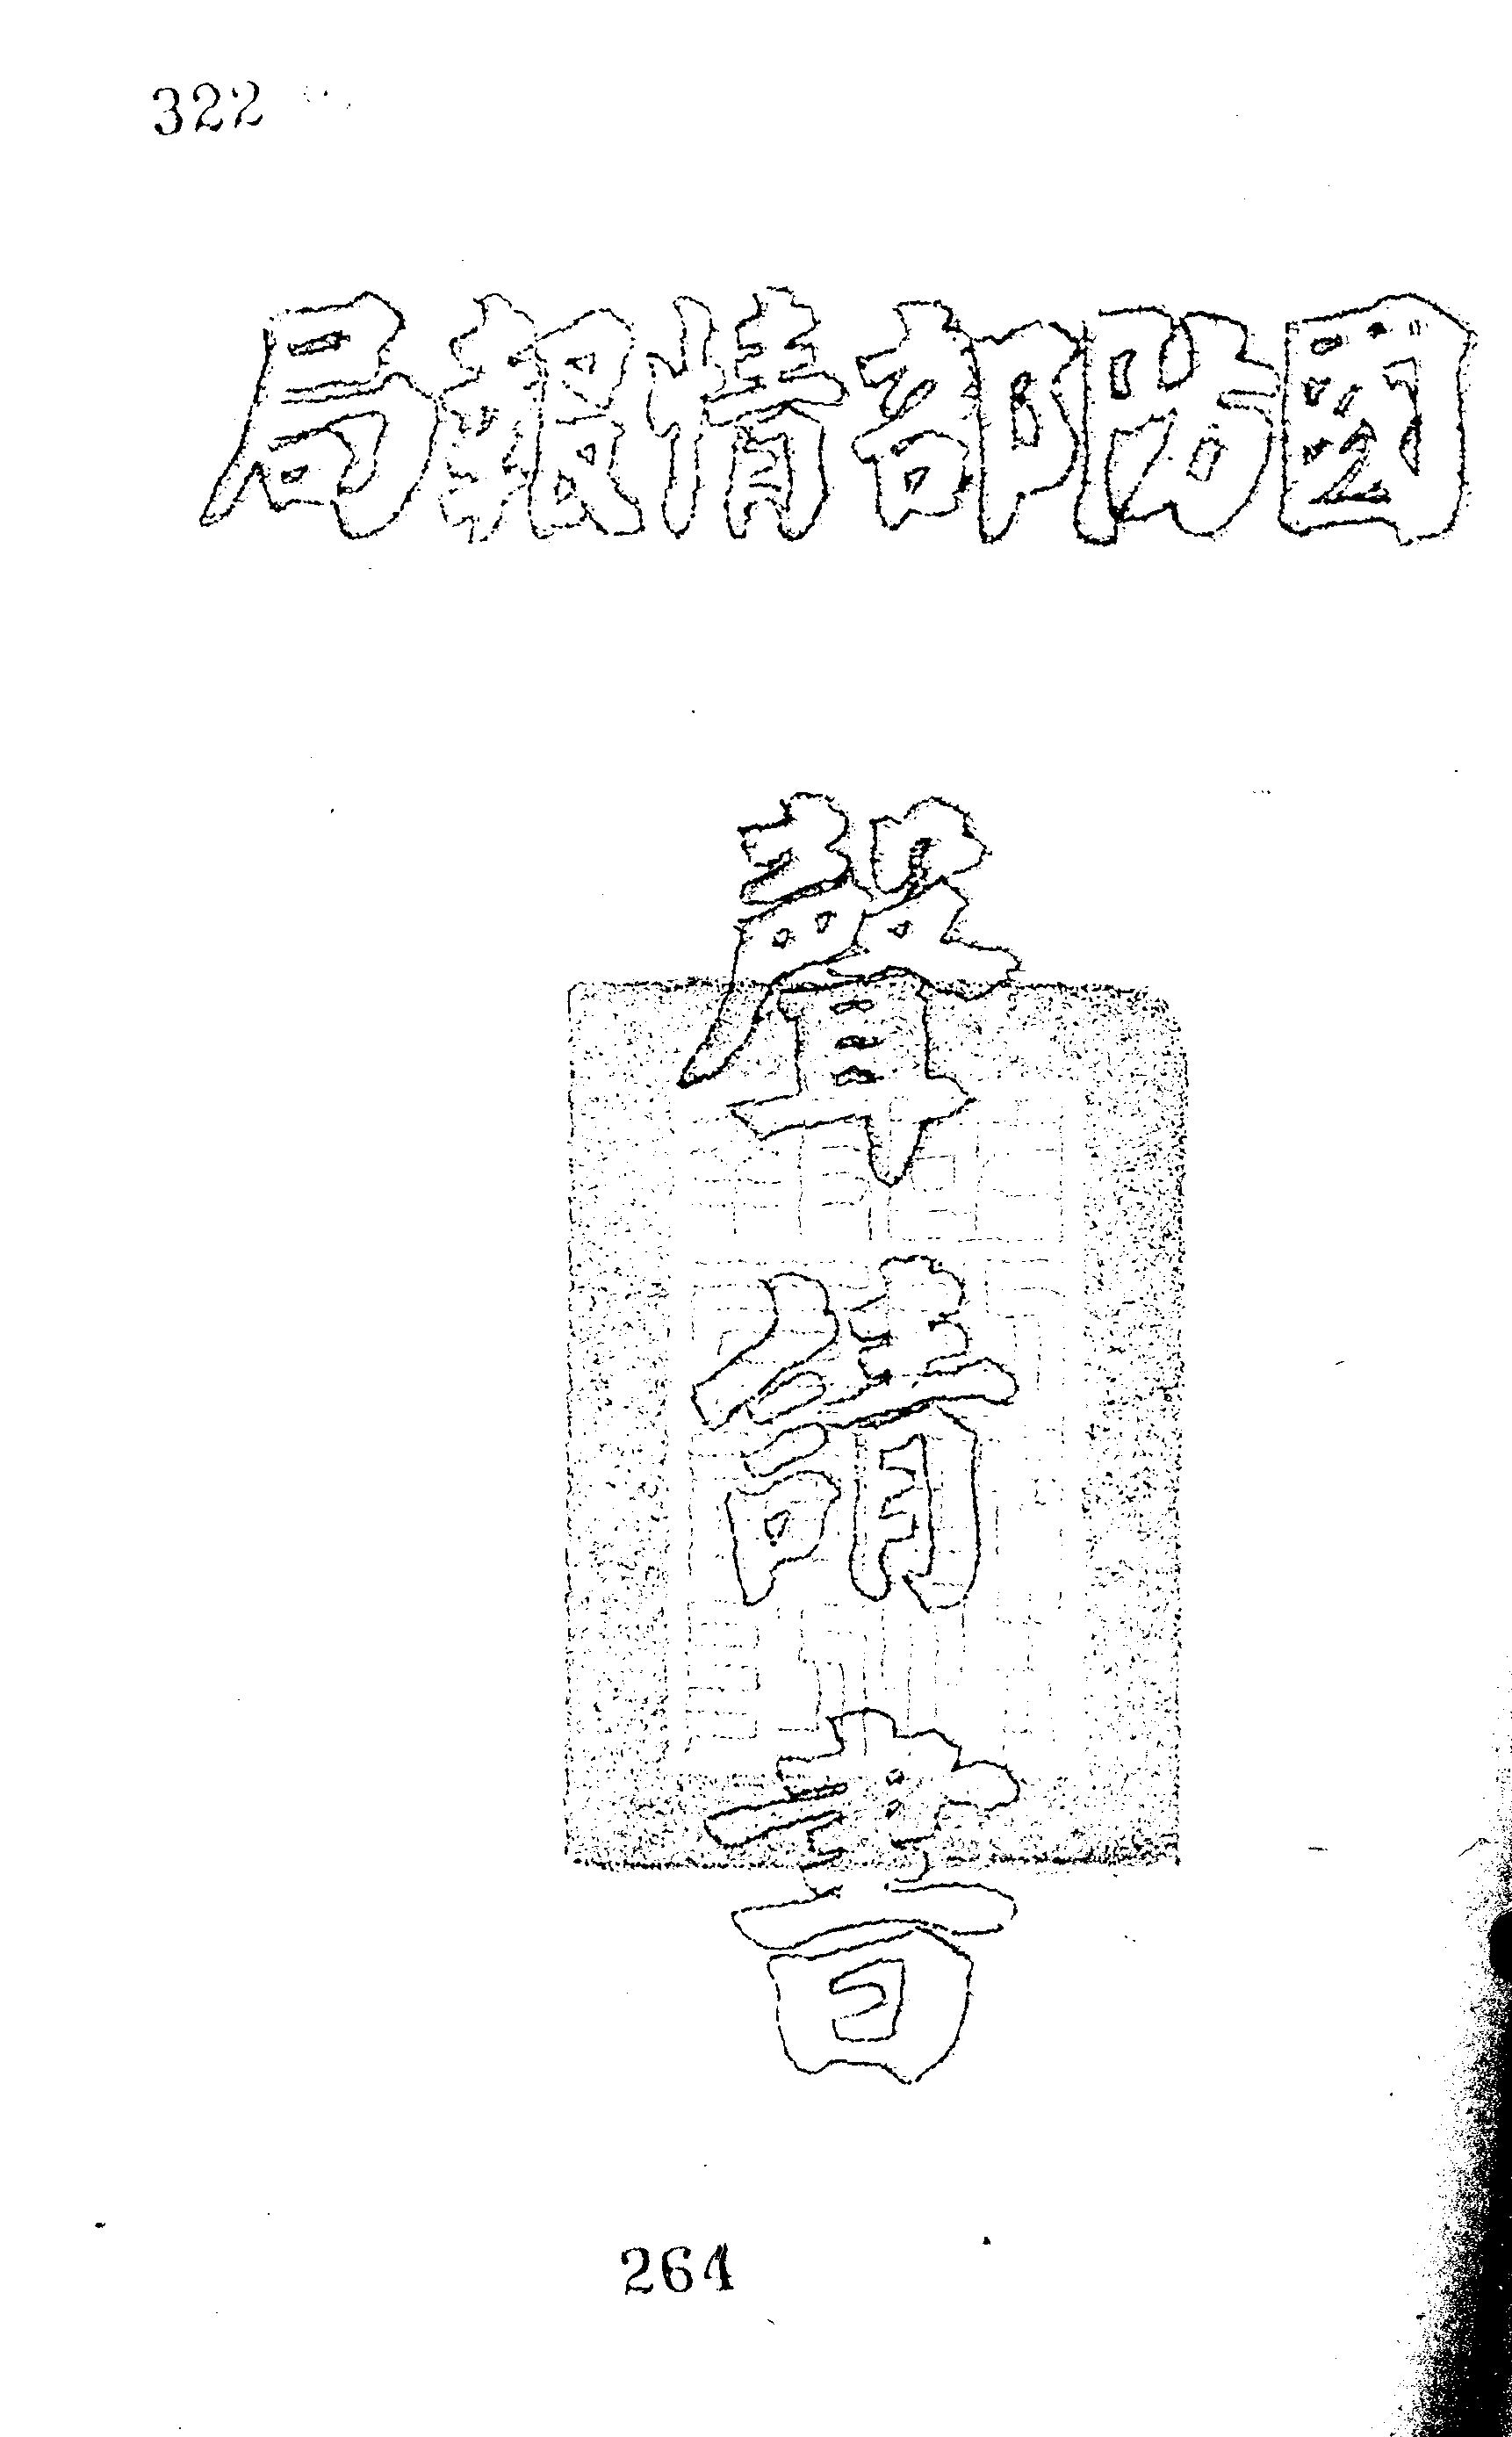 322
國防部情報局
聲請書
264